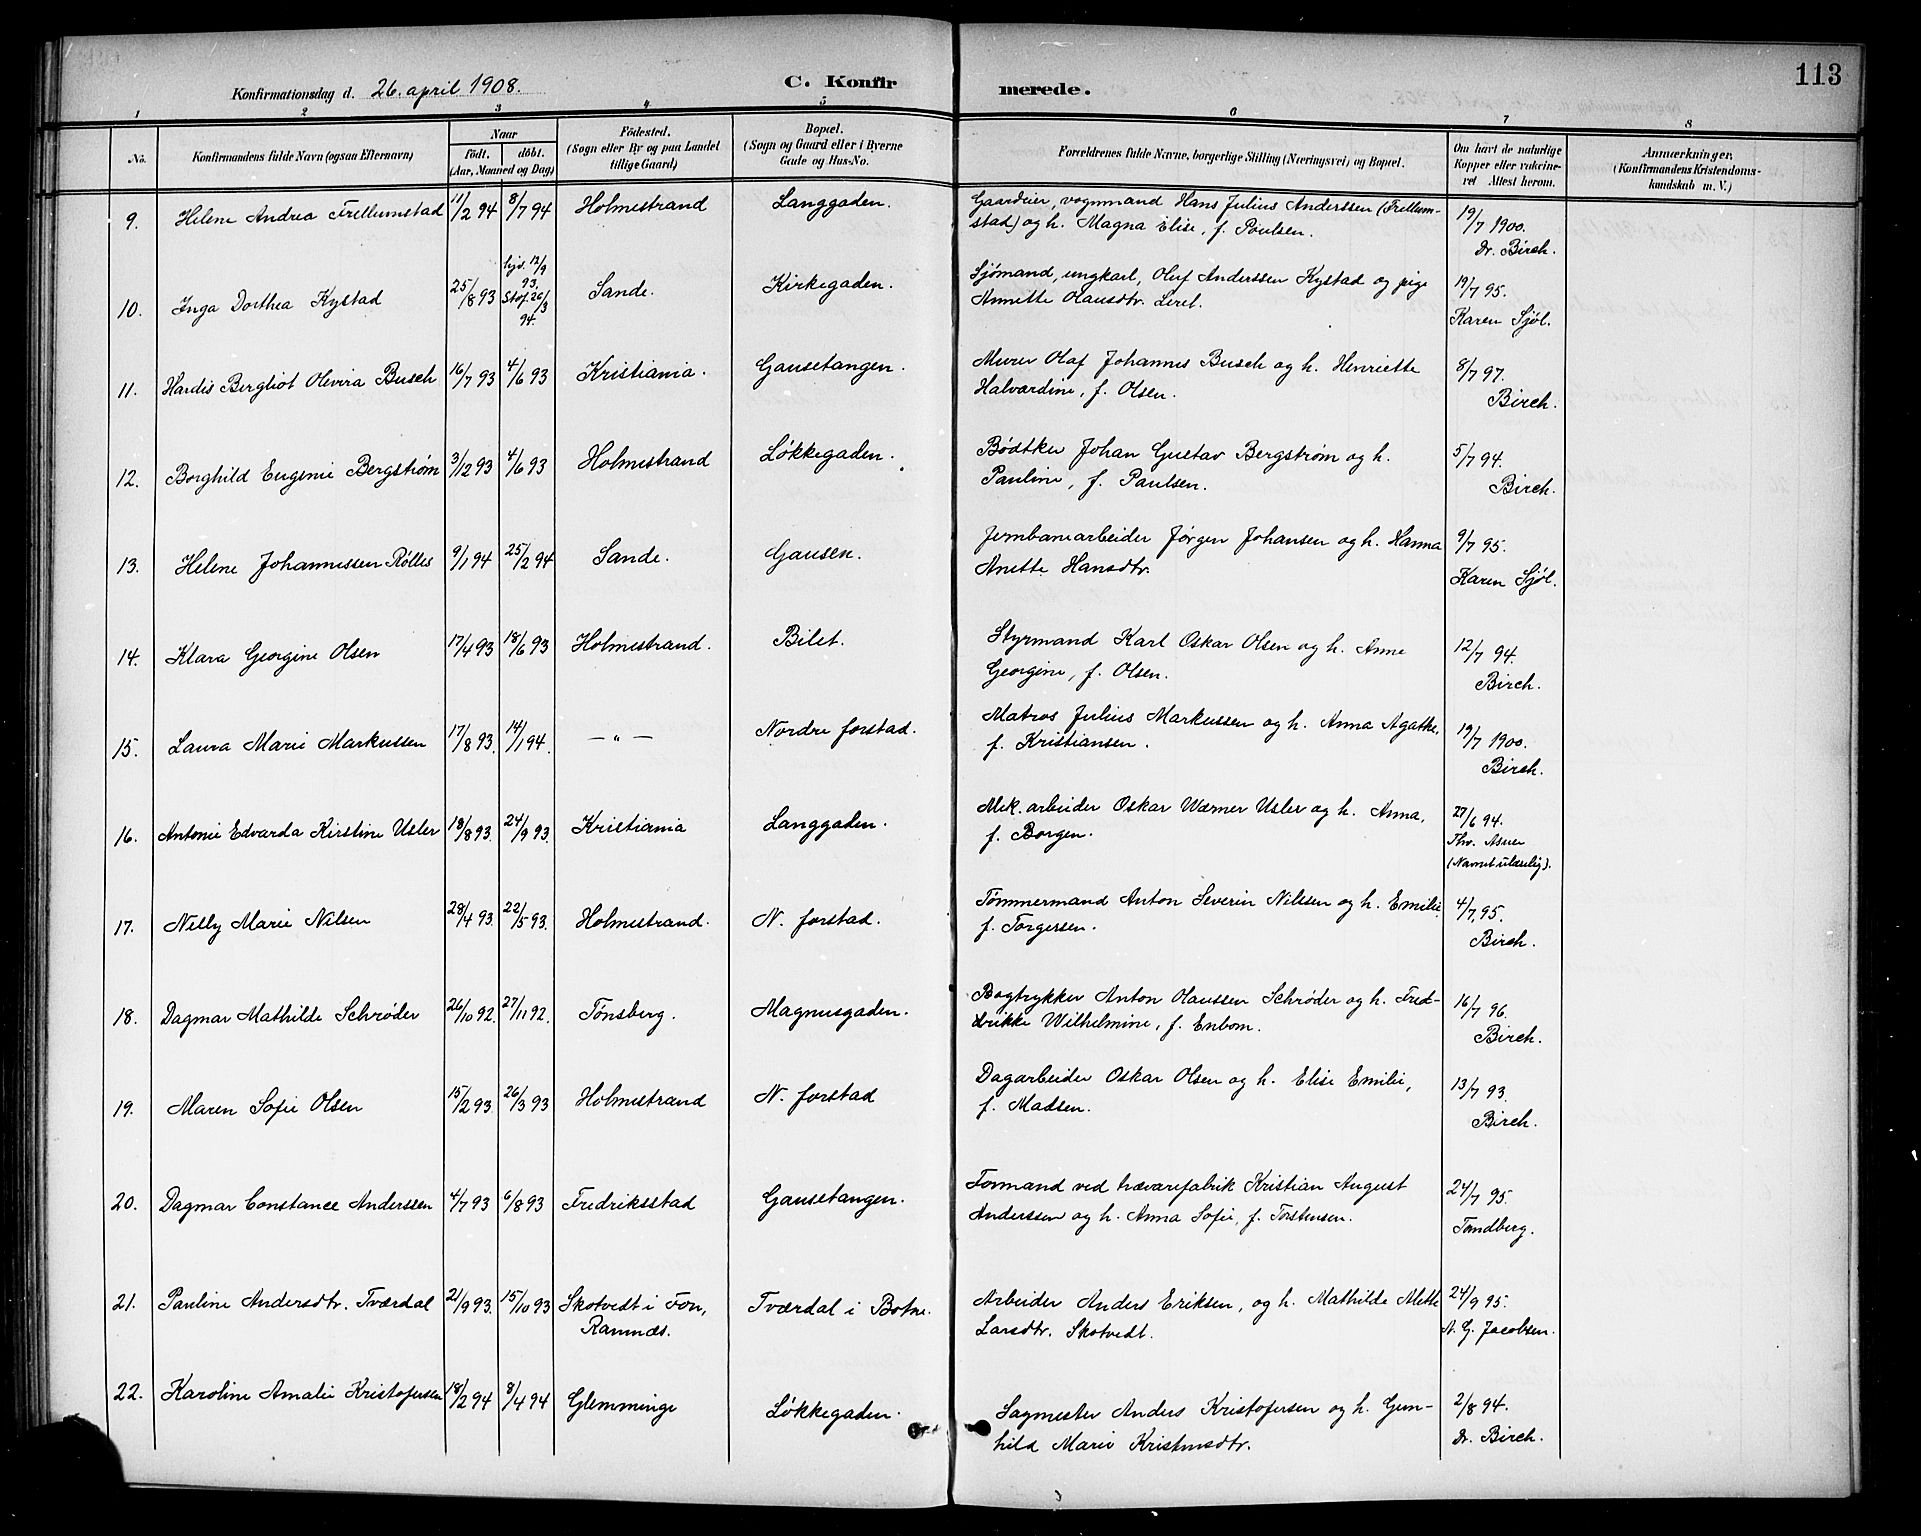 113
Konfirmationsdag d. 26. april 1908.
C. Konfir
merede.
1 2 3 4 5 6 7 8
No.
Konfirmandens fulde Navn (ogsaa Efternavn)
Naar
födt. döbt.
(Aar, Maaned og Dag)
Födested.
(Sogn eller By og paa Landet
tillige Gaard)
Bopæl.
(Sogn og Gaard eller i Byerne
Gade og Hus-No.
Forældrenes fulde Navne, borgerlige Stilling (Næringsvei) og Bopæl.
Om havt de naturlige
Kopper eller vakcine-
ret Attest herom.
Anmærkninger.
(Konfirmandens Kristendoms-
kundskab m. V.)
9. Helene Andrea Trellumstad 11/2 94 8/7 94 Holmestrand Langgaden.
Gaardeier, vognmand Hans Julius Anderssen (Trellum-
stad) og h. Magna Elise, f. Poulsen.
19/7 1900.
Dr. Birch.
10. Inga Dorthea Kystad 25/8 93 hjd. 12/9
93.
Staf. 26/3
94.
Sande. Kirkegaden.
Sjömand, ungkarl, Oluf Anderssen Kystad og pige
Annette Olausdtr. Leret.
19/7 95.
Karen Sjöl.
11. Hardis Bergliot Olevira Busch 16/7 93 4/6 93 Kristiania. Gausetangen.
Murer Olaf Johannes Busch og h. Henriette
Halvardine, f. Olsen.
8/7 97.
Birch.
12. Borghild Eugenie Bergstrøm 3/12 93 4/6 93 Holmestrand Løkkegaden.
Bødtker Johan Gustav Bergstrøm og h.
Pauline, f. Paulsen.
5/7 94.
Birch.
13. Helene Johannessen Rølles 9/1 94 25/2 94 Sande. Gausen.
Jernbanearbeider Jørgen Johansen og h. Hanna
Anette Hansdtr.
9/7 95.
Karen Sjöl.
14. Klara Georgine Olsen 17/4 93 18/6 93 Holmestrand. Bilet.
Styrmand Karl Oskar Olsen og h. Anne
Georgine, f. Olsen.
12/7 94.
Birch.
15. Laura Marie Markussen 17/8 93. 14/1 94. — „ — Nordre forstad.
Matros Julius Markussen og h. Anna Agathe,
f. Kristiansen.
19/7 1900.
Birch.
16. Antonie Edvarda Kirstine Usler 18/8 93. 24/9 93. Kristiania Langgaden.
Mek. arbeider Oskar Wærner Usler og h. Anna,
f. Borgen.
27/6 94.
Thv. Asner
(Navnet ulæselig).
17. Nelly Marie Nilsen 28/4 93. 22/5 93. Holmestrand. N. forstad.
Tømmermand Anton Severin Nilsen og h. Emilie,
f. Torgersen.
4/7 95.
Birch.
18. Dagmar Mathilde Schrøder 26/10 92. 27/11 92. Tønsberg. Magnusgaden.
Bogtrykker Anton Olaussen Schrøder og h. Fred-
rikke Wilhelmine, f. Enbom.
16/7 96.
Birch.
19. Maren Sofie Olsen 15/2 93. 26/3 93 Holmestrand N. forstad
Dagarbeider Oskar Olsen og h. Elise Emilie,
f. Madsen.
13/7 93.
Birch.
20. Dagmar Constance Anderssen 4/7 93 6/8 93 Fredriksstad Gausetangen.
Formand ved trævarefabrik Kristian August
Anderssen og h. Anna Sofie, f. Torstensen.
24/7 95.
Tandberg.
21. Pauline Andersdtr. Tværdal 21/9 93. 15/10 93 Skotvedt i Fon,
Ramnæs.
Tværdal i Botne.
Arbeider Anders Eriksen, og h. Mathilde Mette
Larsdtr. Skotvedt.
24/9 95.
A. G. Jacobsen.
22. Karoline Amalie Kristofersen 18/2 94 8/4 94 Glemminge Løkkegaden.
Sagmester Anders Kristofersen og h. Gun-
hild Marie Kristensdtr.
2/8 94.
Dr. Birch.